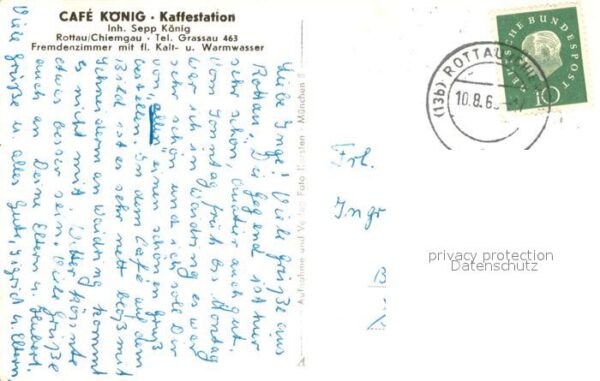 CAFÉ KÖNIG · Kaffestation
Inh. Sepp König
Rottau/Chiemgau · Tel. Grassau 463
Fremdenzimmer mit fl. Kalt- u. Warmwasser
Liebe Inge! Viele Grüße aus
Rottau. Die Gegend ist hier
sehr schön, Quatier auch gut.
Vom Sonntag früh bis Montag
war ich in Waidring, es war
sehr schön und ich soll Dir
von "allen" einen schönen Gruß
bestellen. In dem Café auf dem
Bild ist es sehr nett, bloß mit
Schneidern an Waidring kommt
es nicht mit. Wetter könnte
etwas besser sein. Viele Grüße
auch an Deine Eltern u. Hubert.
Viele Grüße u. alles Gute, Sigrid u. Eltern
Aufnahme und Verlag Foto Karsten - München
(13b) ROTTAU
10.8.6
DEUTSCHE BUNDESPOST
10
Frl.
Inge
privacy protection
Datenschutz